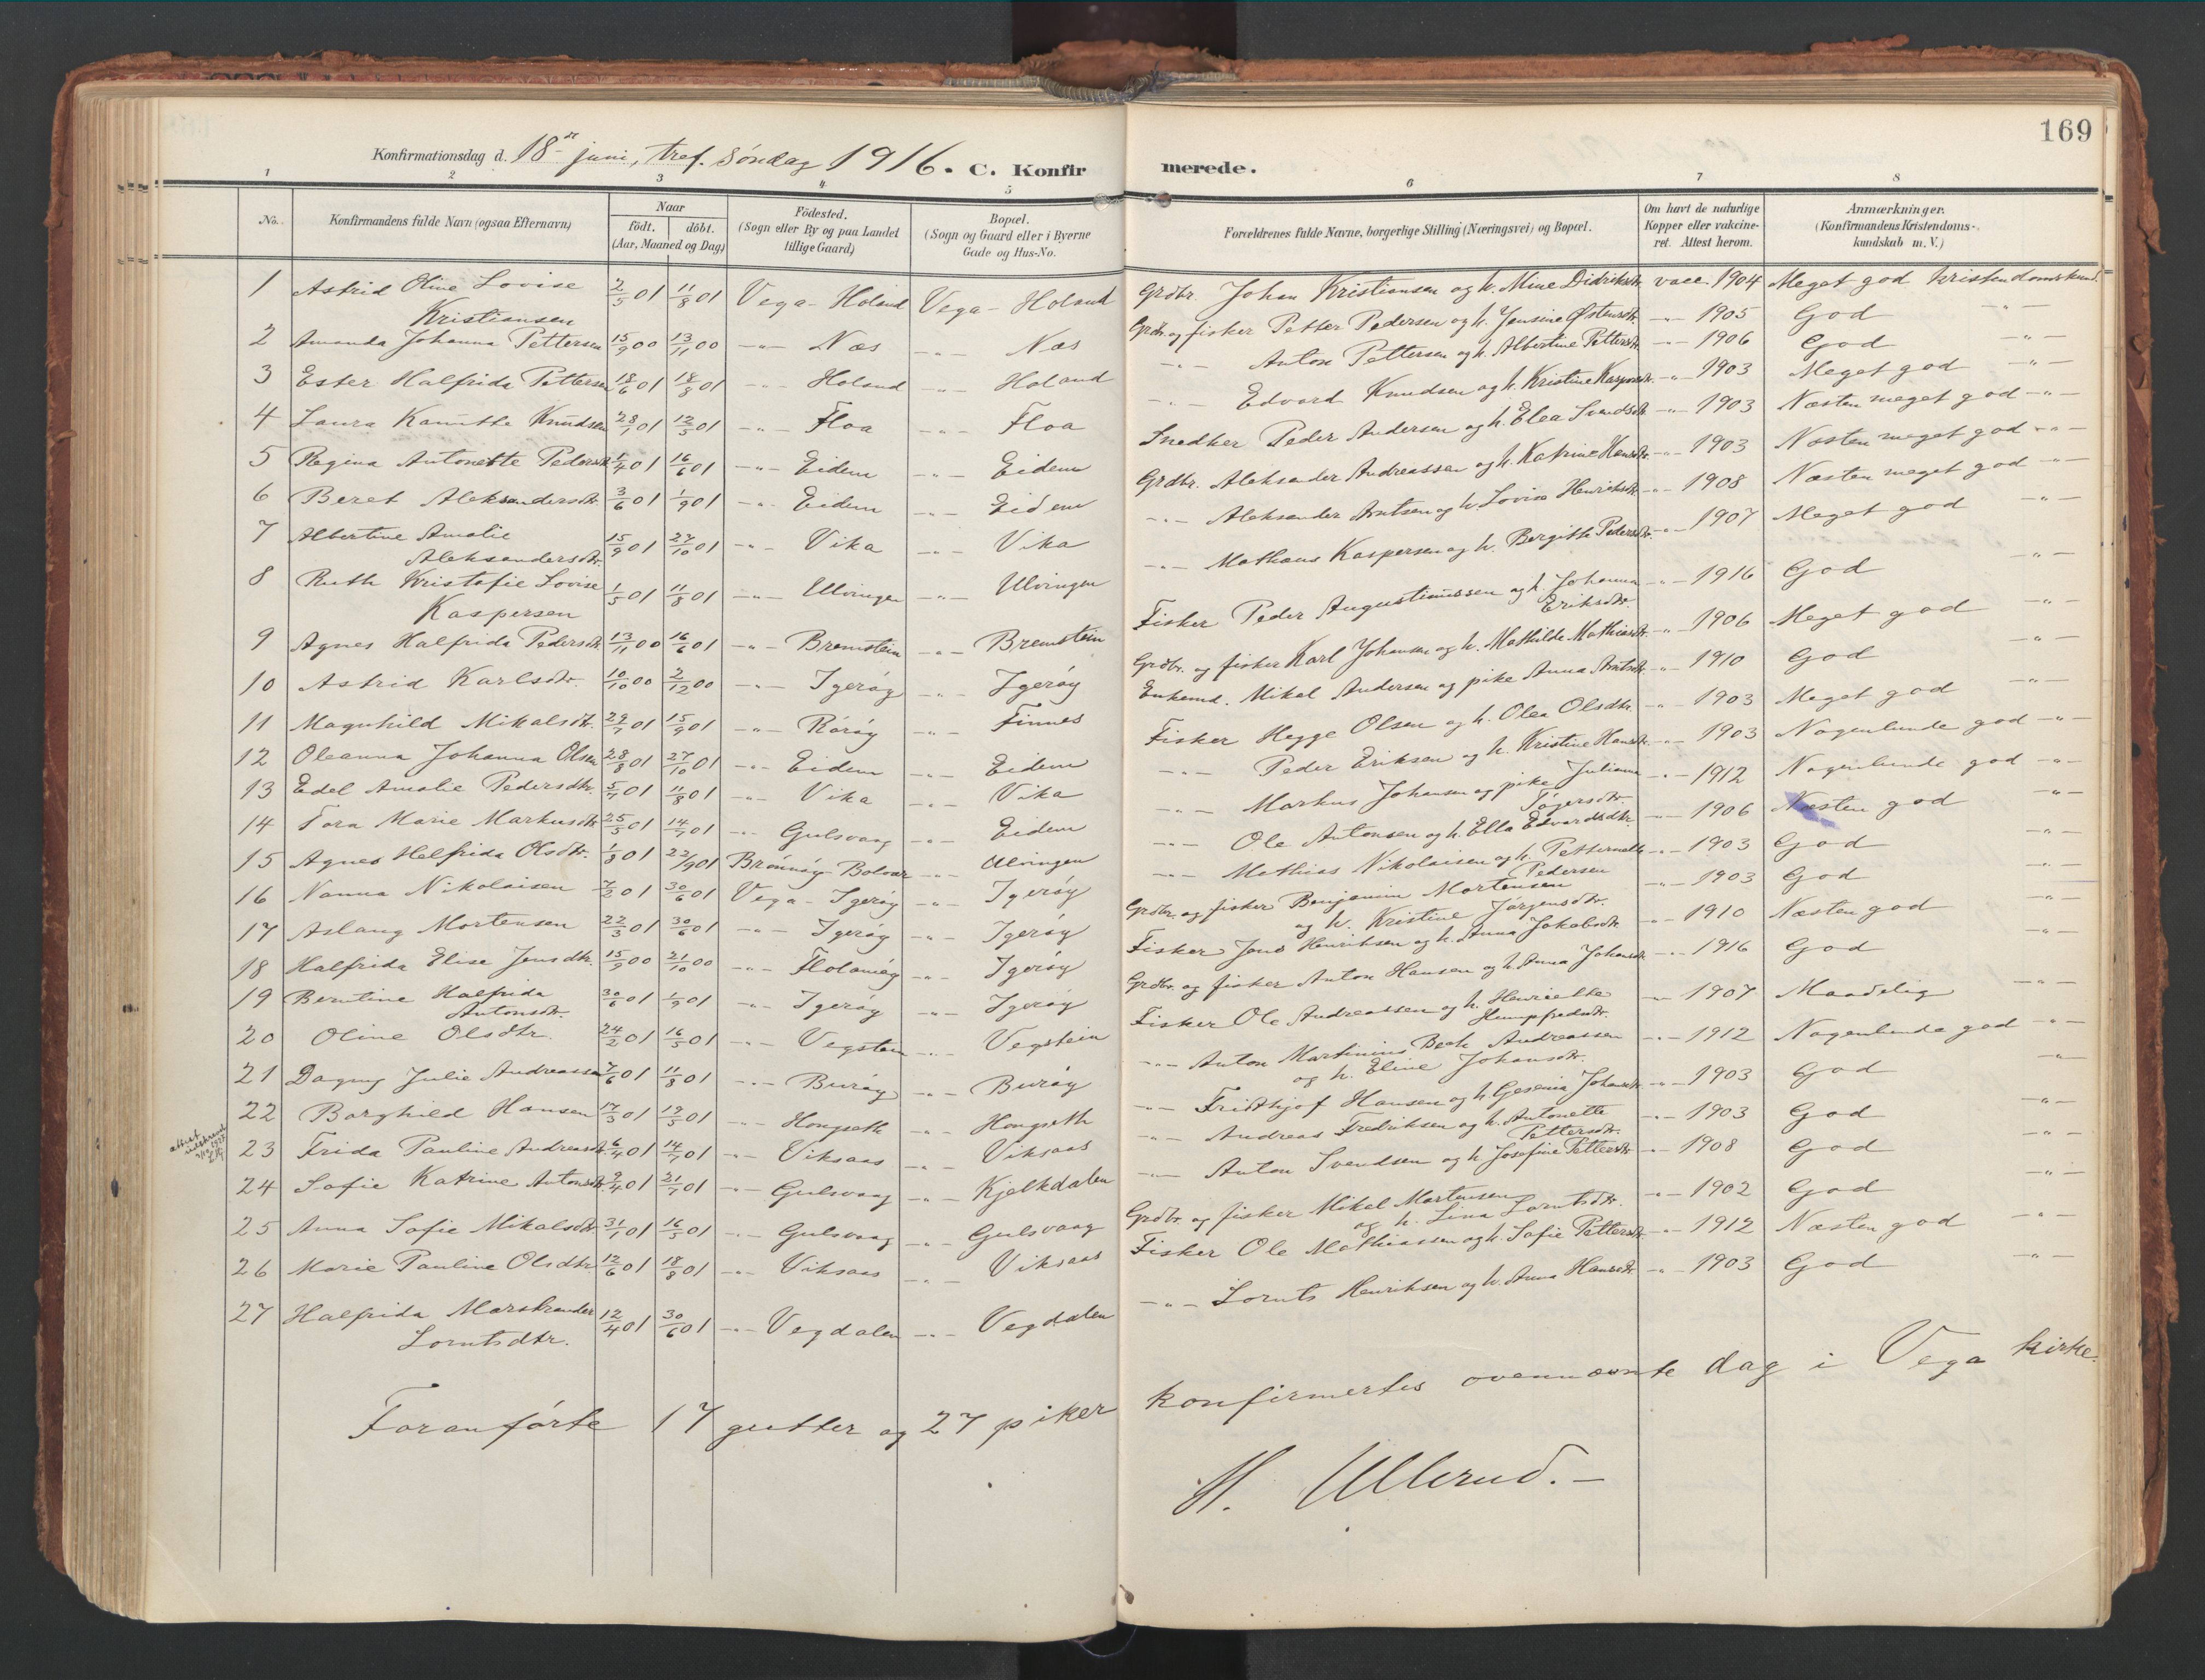 169
Konfirmationsdag d. 18de juni, tref. søndag 1916. C. Konfirmerede.
1 2 3 4 5 6 7 8
No. Konfirmandens fulde Navn (ogsaa Efternavn) Naar født. døbt. (Aar, Maaned og Dag) Fødested. (Sogn eller By og paa Landet tillige Gaard) Bopæl. (Sogn og Gaard eller i Byerne Gade og Hus-No. Forældrenes fulde Navne, borgerlige Stilling (Næringsvei) og Bopæl. Om havt de naturlige Kopper eller vakcineret. Attest herom. Anmærkninger. (Konfirmandens Kristendomskundskab m. V.)
1 Astrid Oline Lovise Kristiansen 2/5 01 11/8 01 Vega - Holand Vega - Holand Grdbr. Johan Kristiansen og h. Mine Didriksdtr. vacc. 1904 Meget god kristendomskund.
2 Amanda Johanna Pettersen 15/9 00 13/11 00 -"- Næs -"- Næs Grdbr. og fisker Petter Pedersen og h. Jensine Østensdtr. -"- 1905 God -"-
3 Ester Halfrida Pettersen 18/6 01 18/8 01 -"- Holand -"- Holand -"- Anton Pettersen og h. Albertine Pettersdtr. -"- 1906 God -"-
4 Laura Kanutte Knudsen 28/1 01 12/5 01 -"- Floa -"- Floa -"- Edvard Knudsen og h. Kristine Kaspersdtr. -"- 1903 Meget god "
5 Regina Antonette Pedersdtr. 1/4 01 16/6 01 -"- Eidem -"- Eidem Snedker Peder Andersen og h. Elea Svendsdtr. -"- 1903 Næsten meget god -"-
6 Beret Aleksandersdtr. 3/6 01 1/9 01 -"- Eidem -"- Eidem Grdbr. Aleksander Andreassen og h. Katrine Hansdtr. -"- 1903 Næsten meget god -"-
7 Albertine Amalie Aleksandersdtr. 15/9 01 27/10 01 -"- Vika -"- Vika -"- Aleksander Arntsen og h. Lovise Henriksdtr. -"- 1908 Næsten meget god -"-
8 Ruth Kristofie Lovise Kaspersen 1/5 01 11/8 01 -"- Ulvingen -"- Ulvingen -"- Mathæus Kaspersen og h. Bergitte Pedersdtr. -"- 1907 Meget god -"-
9 Agnes Halfrida Pedersdtr. 13/11 00 16/6 01 -"- Bremstein -"- Bremstein Fisker Peder Augustinussen og h. Johanna Eriksdtr. -"- 1916 God -"-
10 Astrid Karlsdtr. 10/10 00 2/12 00 -"- Igerøy -"- Igerøy Grdbr. og fisker Karl Johansen og h. Mathilde Mathiasdtr. -"- 1906 Meget god -"-
11 Magnhild Mikalsdtr. 29/7 01 15/9 01 -"- Rørøy -"- Finnes Enkemd. Mikal Andersen og pike Anna Arntsdtr. -"- 1910 God -"-
12 Oleanna Johanna Olsen 28/8 01 27/10 01 -"- Eidem -"- Eidem Fisker Hegge Olsen og h. Olea Olsdtr. -"- 1903 Meget god -"-
13 Edel Amalie Pedersdtr. 5/7 01 11/8 01 -"- Vika -"- Vika -"- Peder Eriksen og h. Kristine Hansdtr. -"- 1903 Nogenlunde god -"-
14 Tora Marie Markusdtr. 25/5 01 14/7 01 -"- Gulsvaag -"- Eidem -"- Markus Johansen og pike Juliana Tøgersdtr. -"- 1912 Nogenlunde god -"-
15 Agnes Helfrida Olsdtr. 1/8 01 22/9 01 Brønnøy Bolvær -"- Ulvingen -"- Ole Antonsen og h. Ella Edvardsdtr. -"- 1906 Næsten god -"-
16 Nanna Nikolaisen 7/2 01 30/6 01 Vega - Igerøy -"- Igerøy -"- Mathias Nikolaisen og h. Petternelle Pedersen -"- 1903 God -"-
17 Aslaug Mortensen 22/3 01 30/6 01 -"- Igerøy -"- Igerøy Grdbr. og fisker Benjamin Mortensen og h. Kristine Jørgensdtr. -"- 1903 God -"-
18 Halfrida Elise Jensdtr. 15/9 00 21/10 00 -"- Floløøy -"- Igerøy Fisker Jens Henriksen og h. Anna Jakobsdtr. -"- 1910 Næsten god -"-
19 Berntine Halfrida Antonsdtr. 30/6 01 1/9 01 -"- Igerøy -"- Igerøy Grdbr. og fisker Anton Hansen og h. Anna Johansdtr. -"- 1916 God -"-
20 Oline Olsdtr. 24/2 01 16/5 01 -"- Vegstein -"- Vegstein Fisker Ole Andreassen og h. Henriette Humpfredsdtr. -"- 1907 Maadelig -"-
21 Dagny Julie Andreassen 7/6 01 11/8 01 -"- Burøy -"- Burøy -"- Anton Martinius Bech Andreassen og h. Eline Johansdtr. -"- 1912 Nogenlunde god -"-
22 Borghild Hansen 17/3 01 19/5 01 -"- Hongseth -"- Hongseth -"- Fridthjof Hansen og h. Gesenia Johansdtr. -"- 1903 God -"-
23 Frida Pauline Andreasdtr. 6/4 01 14/7 01 -"- Viksaas -"- Viksaas -"- Andreas Fredriksen og h. Antonette Pettersdtr. -"- 1903 God -"-
24 Sofie Katrine Antonsdtr. 9/4 01 21/7 01 -"- Gulsvaag -"- Kjelkdalen -"- Anton Svendsen og h. Josefine Pettersdtr. -"- 1908 God -"-
25 Anna Sofie Mikalsdtr. 31/1 01 16/5 01 -"- Gulsvaag -"- Gulsvaag Grdbr. og fisker Mikal Martensen og h. Lina Lorntsdtr. -"- 1902 God -"-
26 Marie Pauline Olsdtr. 12/6 01 18/8 01 -"- Viksaas -"- Viksaas Fisker Ole Mathiassen og h. Sofie Pettersdtr. -"- 1912 Næsten god -"-
27 Halfrida Marstrander Lorntsdtr. 12/4 01 30/6 01 -"- Vegdalen -"- Vegdalen -"- Lornts Henriksen og h. Anna Hansdtr. -"- 1903 God -"-
Foranførte 17 gutter og 27 piker konfirmertes ovennævnte dag i Vega kirke.
H. Ullerud.